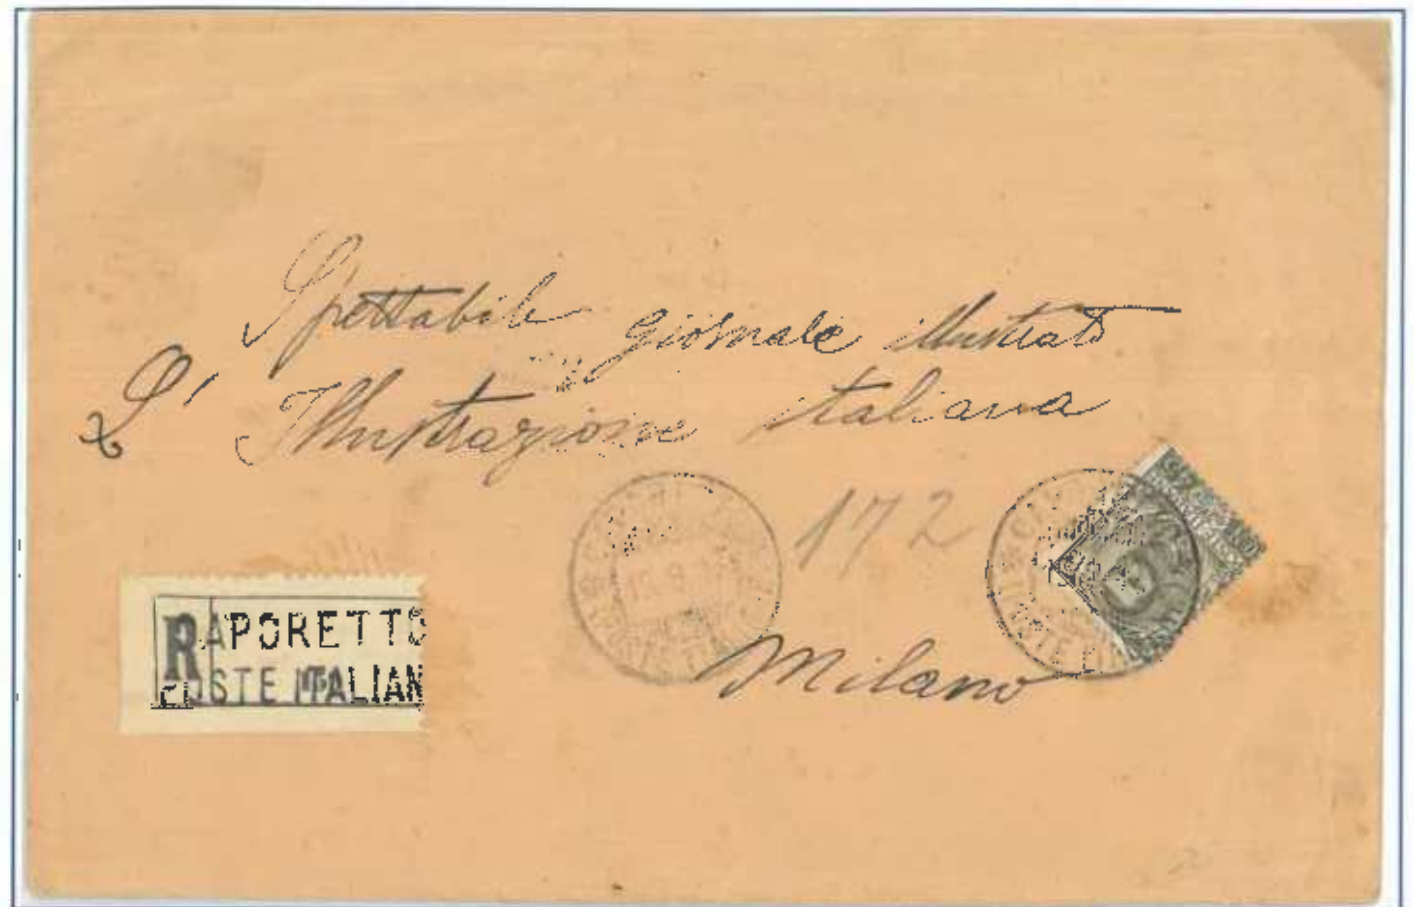 Spettabile giornale illustrato
L' Illustrazione italiana
172
Milano
R
APORETTO
POSTE ITALIAN